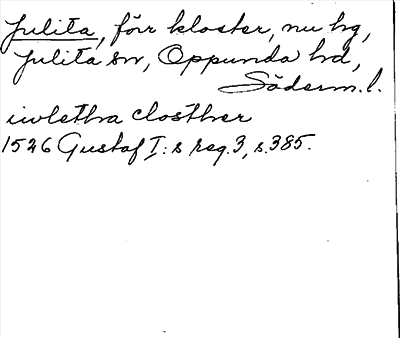 Julita, förr kloster, nu hg,
Julita sn, Oppunda hd,
Söderm. l.
iwletha closther
1526 Gustaf I:s reg. 3, s. 385.